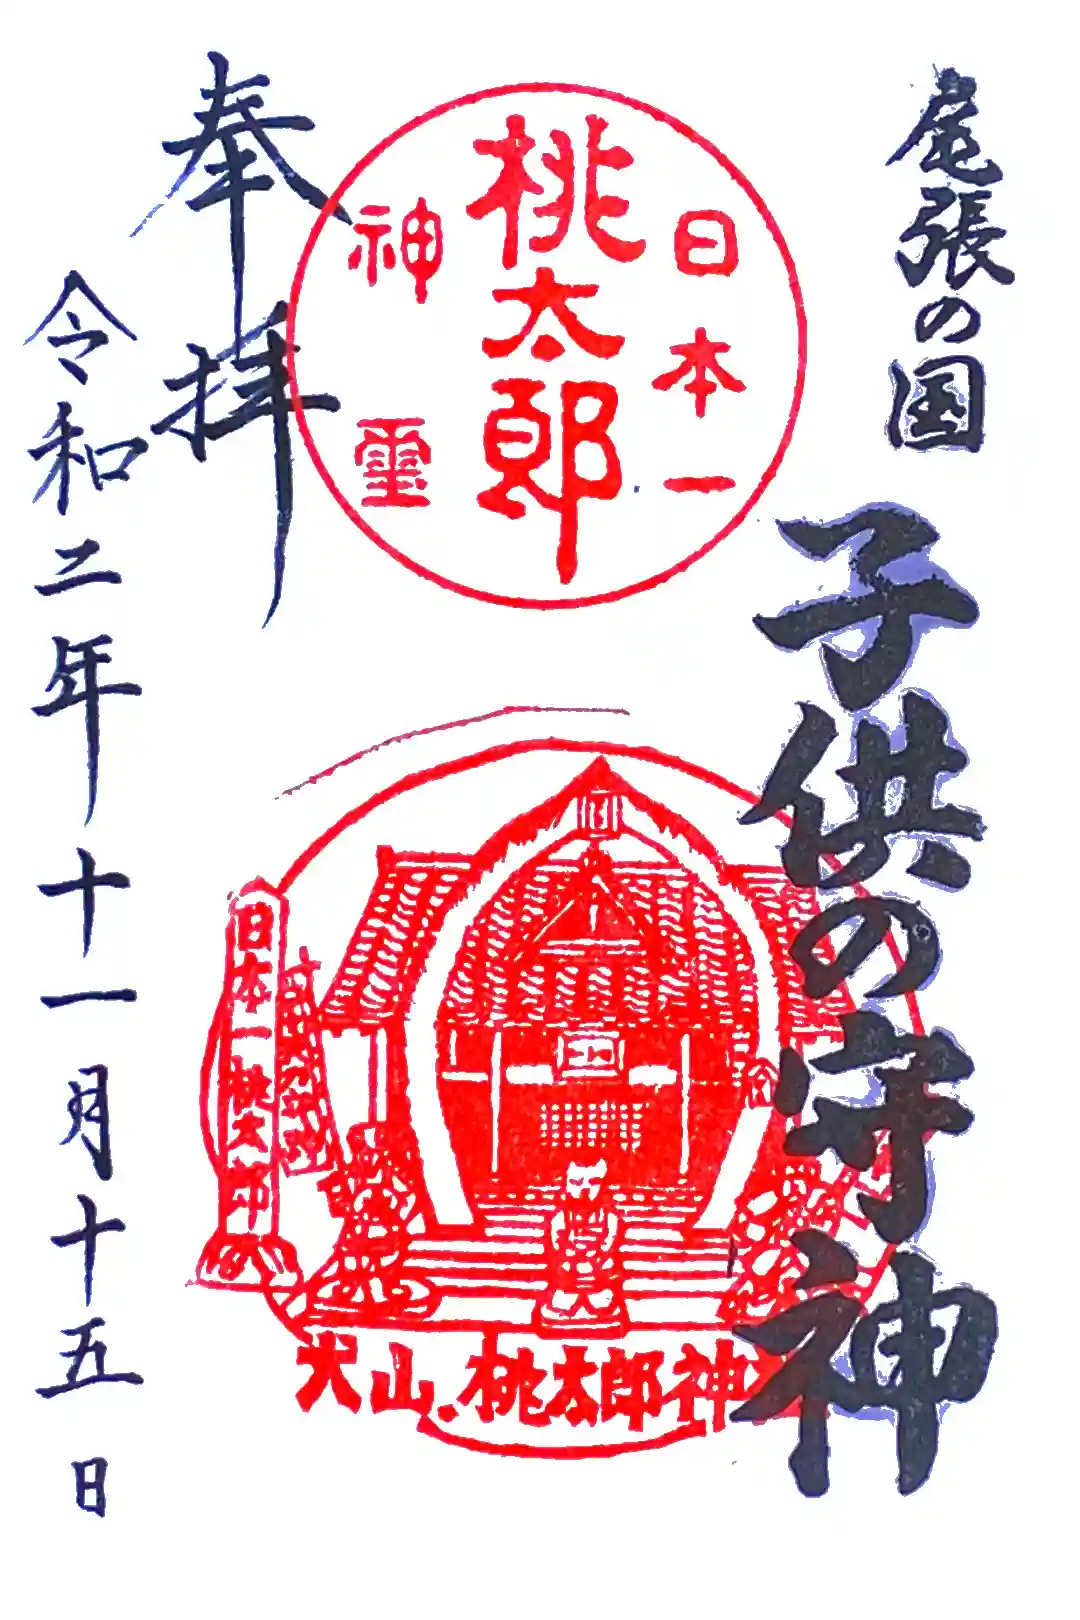 尾張の国
子供の守神
日本一
桃太郎
神霊
奉拝
令和二年十一月十五日
日本一桃太郎
犬山桃太郎神